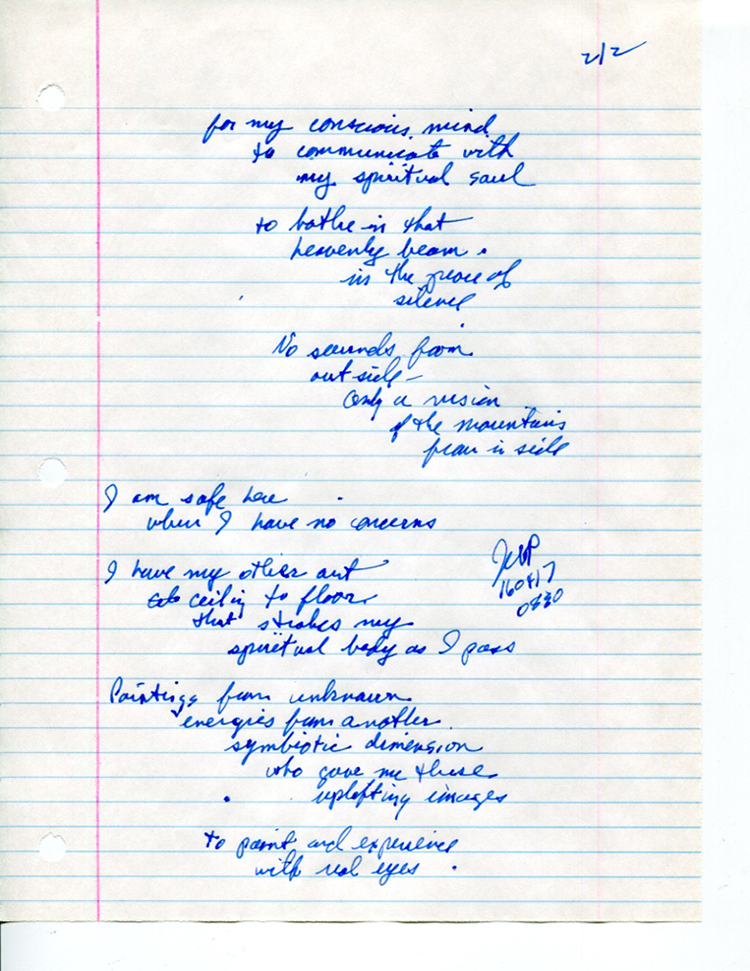 2/2
for my conscious mind
to communicate with
my spiritual soul
to bathe in that
heavenly beam
in the peace of
silence
No sounds from
outside –
Only a vision
of the mountains
from inside
I am safe here
when I have no concerns
I have my other art
ceiling to floor
that strokes my
spiritual body as I pass
160417
0330
Paintings from unknown
energies from another
symbiotic dimension
who gave me these
uplifting images
to paint and experience
with real eyes.